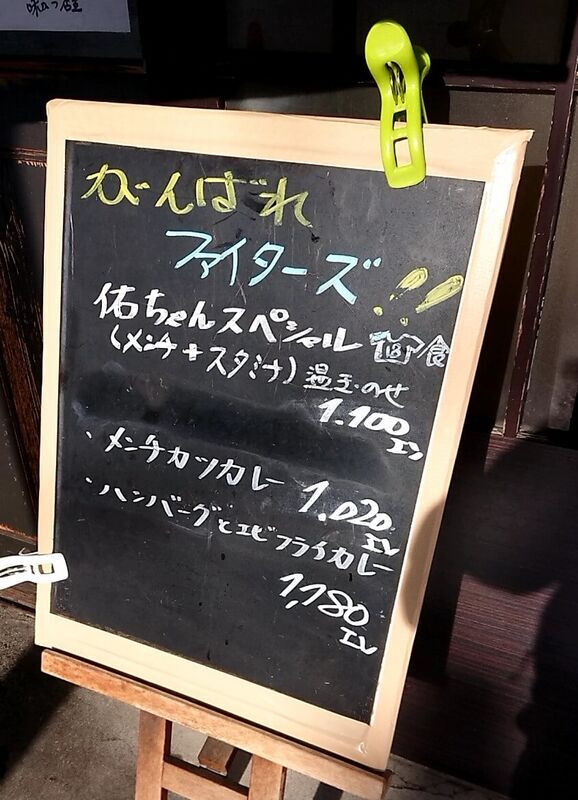 味の店
がんばれ
ファイターズ!!
佑ちゃんスペシャル 18 食
(メンチ+スタミナ)温玉のせ
1.100
エン
・メンチカツカレー 1.020
エン
・ハンバーグとエビフライカレー
1,180
エン